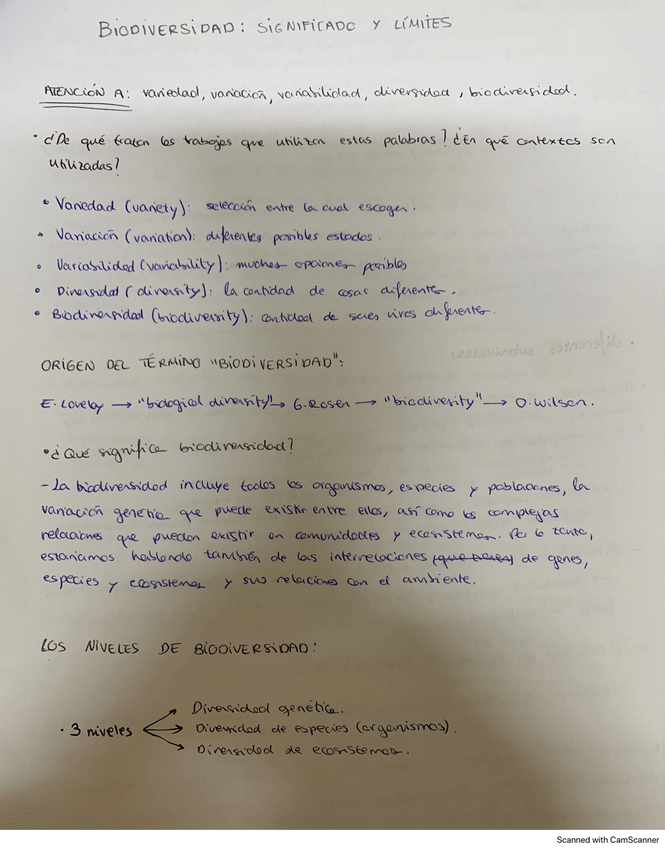 BIODIVERSIDAD: SIGNIFICADO Y LÍMITES
ATENCIÓN A: variedad, variación, variabilidad, diversidad, biodiversidad.
• ¿De qué tratan los trabajos que utilizan estas palabras? ¿En qué contextos son
utilizadas?
• Variedad (variety): selección entre la cual escoger.
• Variación (variation): diferentes posibles estados.
• Variabilidad (variability): muchas opciones posibles
• Diversidad (diversity): la cantidad de cosas diferentes.
• Biodiversidad (biodiversity): cantidad de seres vivos diferentes.
ORIGEN DEL TÉRMINO "BIODIVERSIDAD":
E. Loveby → "biological diversity" → G. Rosen → "biodiversity" → O. Wilson.
• ¿Qué significa biodiversidad?
- La biodiversidad incluye todos los organismos, especies y poblaciones, la
variación genética que puede existir entre ellos, así como las complejas
relaciones que puedan existir en comunidades y ecosistemas. Por lo tanto,
estaríamos hablando también de las interrelaciones de genes,
especies y ecosistemas y sus relaciones con el ambiente.
LOS NIVELES DE BIODIVERSIDAD:
Diversidad genética.
• 3 niveles Diversidad de especies (organismos).
Diversidad de ecosistemas.
Scanned with CamScanner